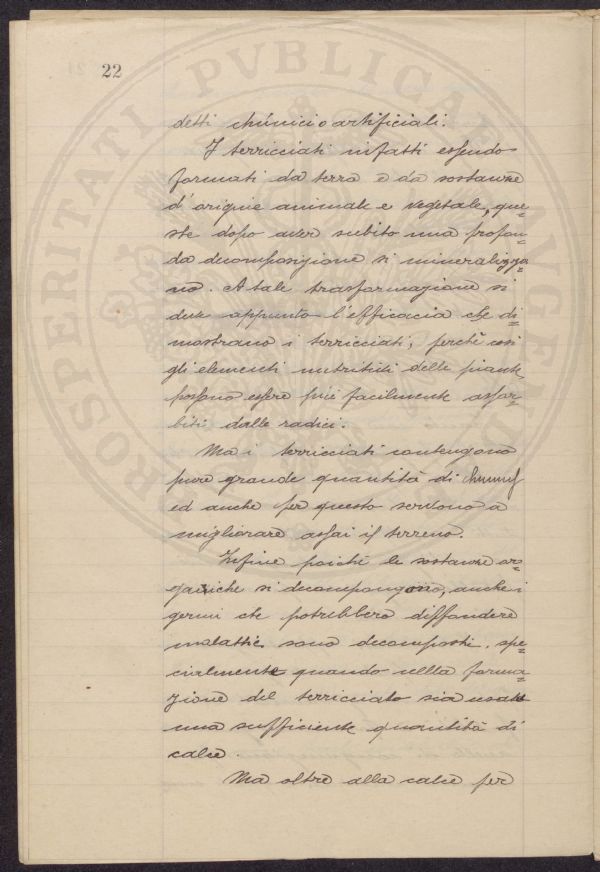 22
PROSPERITATI PVBLICAE AVGENDAE
detti chimici o artificiali.
I terricciati infatti essendo
formati da terra e da sostanze
d'origine animale e vegetale, que=
ste dopo aver subito una profon=
da decomposizione si mineralizza=
no. A tale trasformazione si
deve appunto l'efficacia che di=
mostrano i terricciati, perchè così
gli elementi nutritivi delle piante,
possono essere più facilmente assor=
biti dalle radici.
Ma i terricciati contengono
pure grande quantità di humus
ed anche per questo servono a
migliorare assai il terreno.
Infine poichè le sostanze or=
ganiche si decompongono, anche i
germi che potrebbero diffondere
malattie sono decomposti, spe=
cialmente quando nella forma=
zione del terricciato sia usata
una sufficiente quantità di
calce.
Ma oltre alla calce per